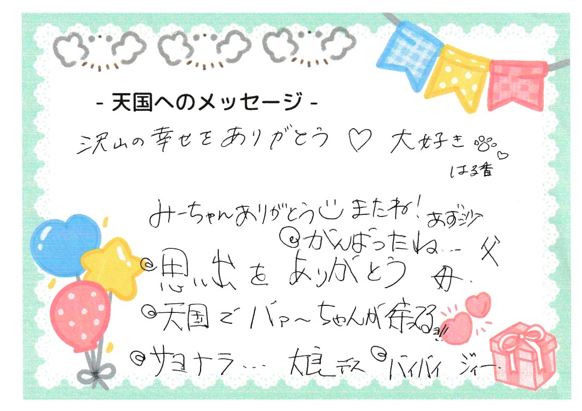 - 天国へのメッセージ -
沢山の幸せをありがとう♡ 大好き
はる香
みーちゃんありがとう またね! あず沙
がんばったね… 父
思い出をありがとう 母
天国でバァ〜ちゃんが待ってるヨ!!
サヨナラ… 娘デス バイバイ ジィー